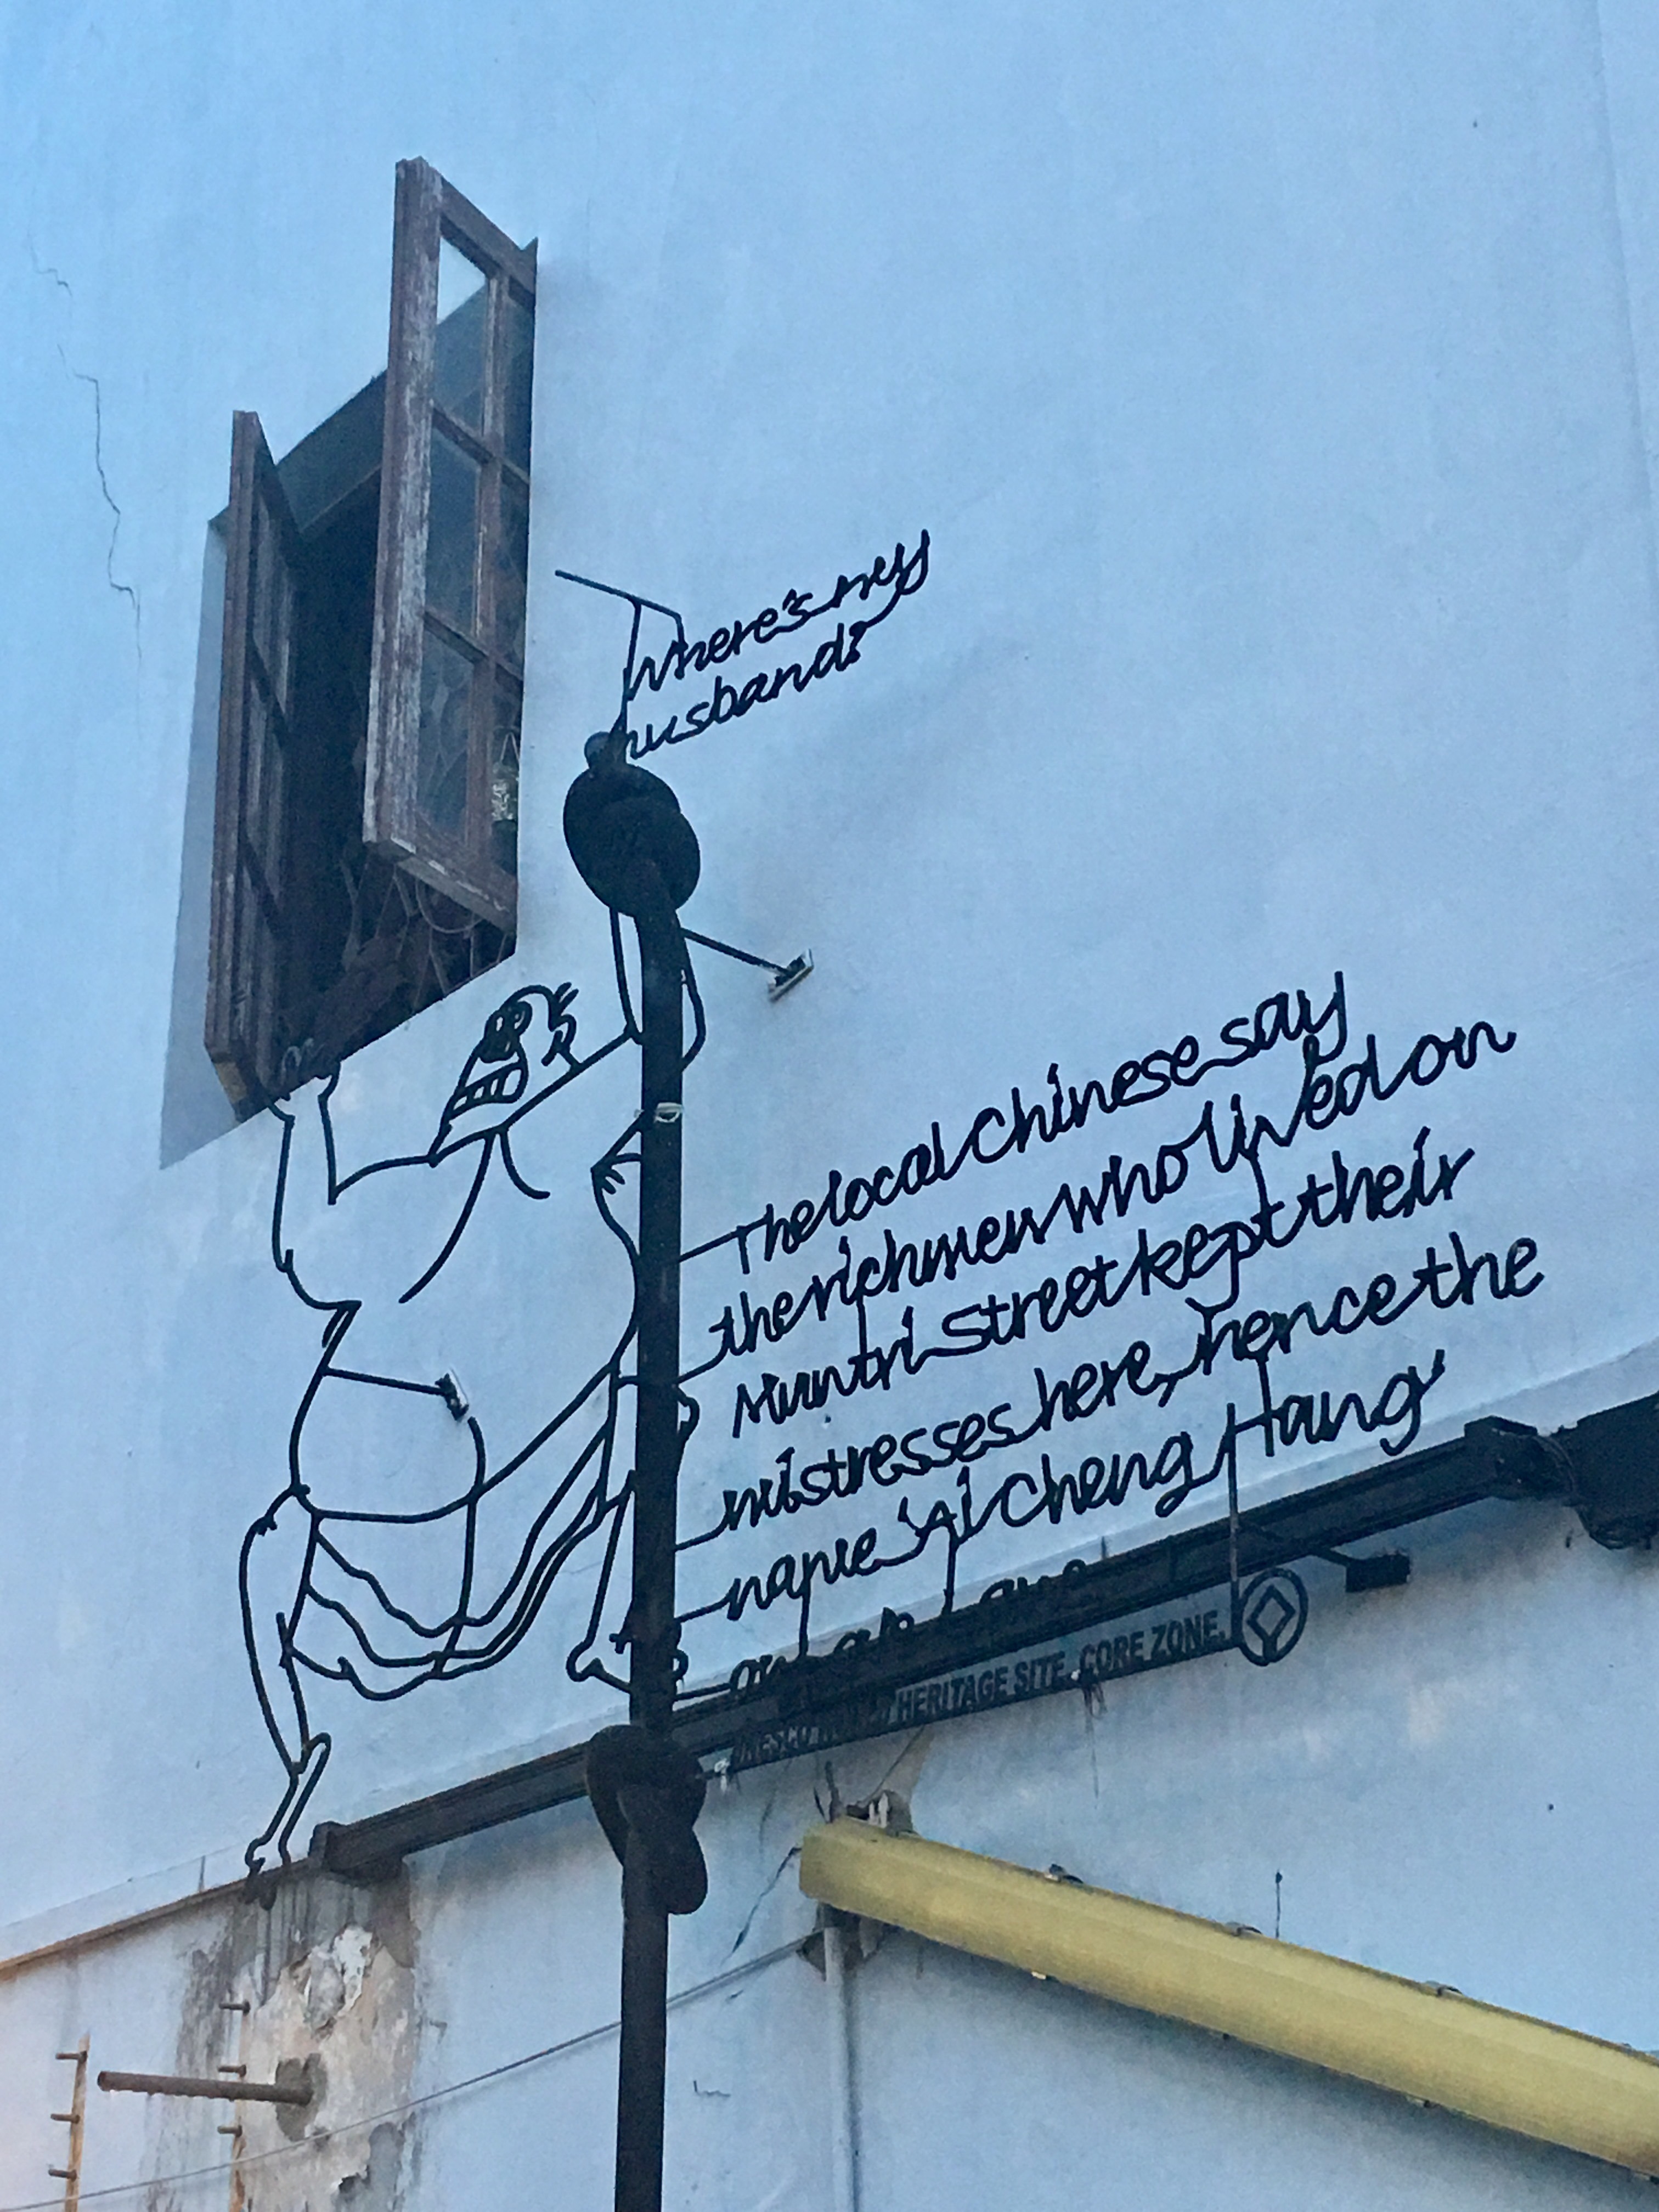 Where's my
husband?
The local Chinese say
the rich men who lived on
Muntri Street kept their
mistresses here, hence the
name 'Ai Cheng Hang'
or
Lane
UNESCO WORLD HERITAGE SITE. CORE ZONE.